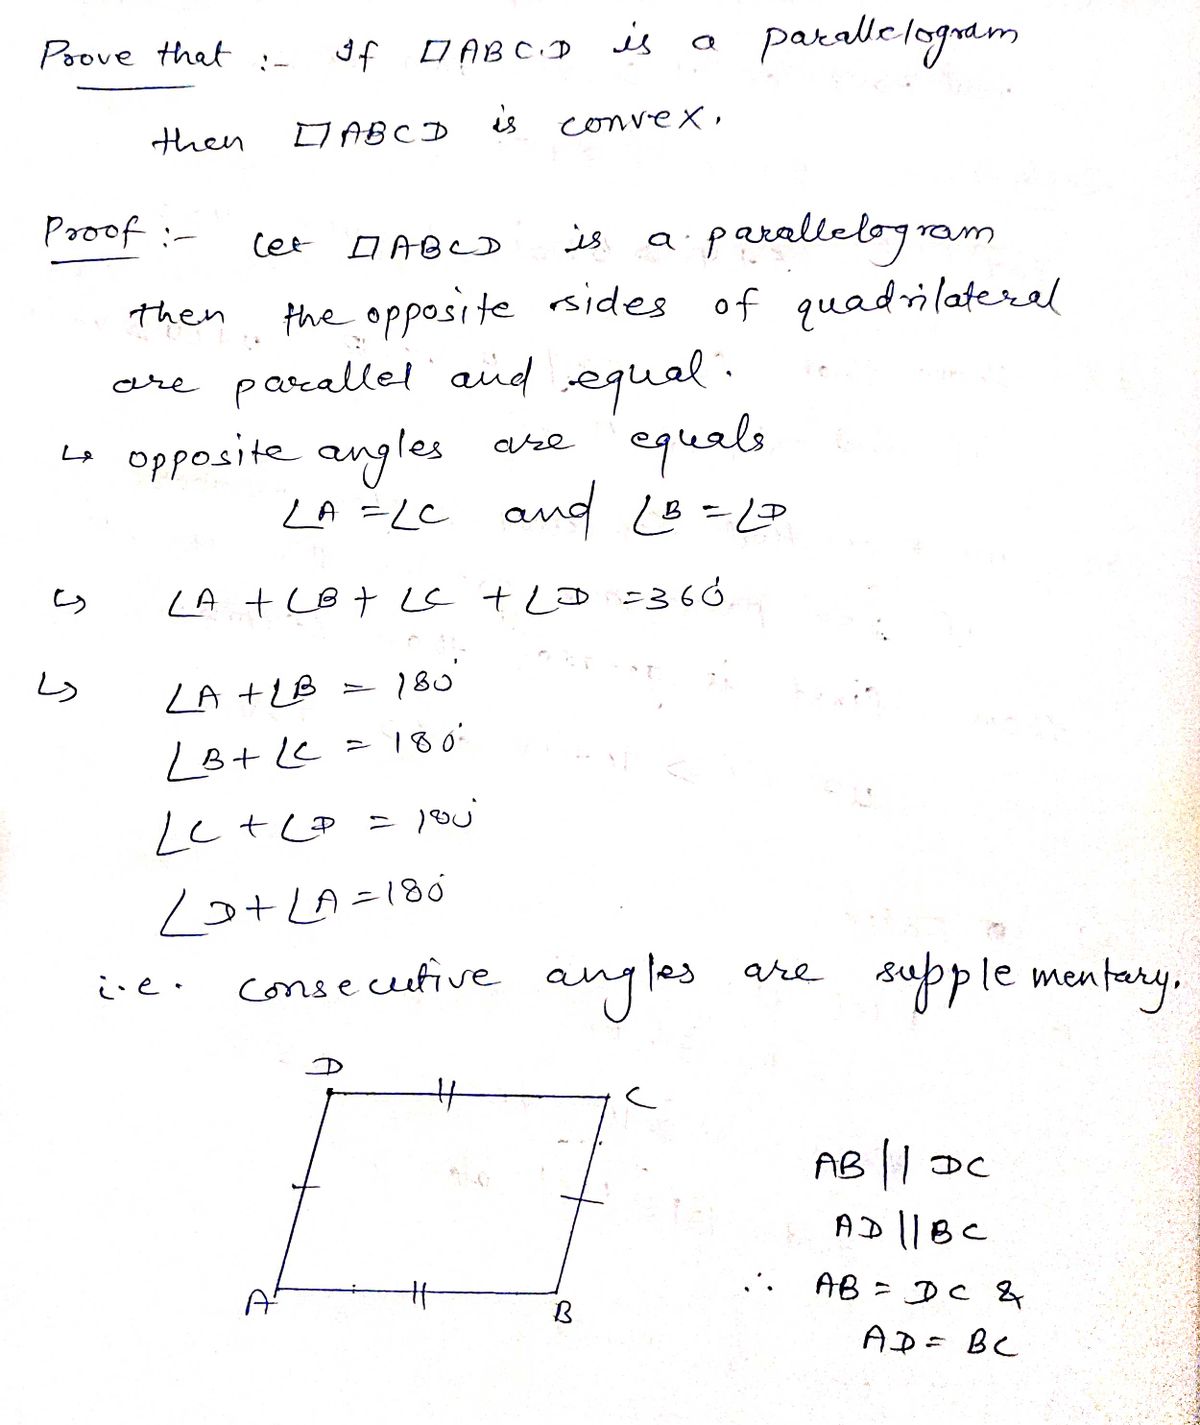 Prove that :- If ▱ABCD is a parallelogram
then ▱ABCD is convex.
Proof :- Let ▱ABCD is a parallelogram
then the opposite sides of quadrilateral
are parallel and equal.
↳ opposite angles are equals
∠A = ∠C and ∠B = ∠D
↳ ∠A + ∠B + ∠C + ∠D = 360°
↳ ∠A + ∠B = 180°
∠B + ∠C = 180°
∠C + ∠D = 180°
∠D + ∠A = 180°
i.e. consecutive angles are supplementary.
D
C
A
B
AB || DC
AD || BC
∴ AB = DC &
AD = BC